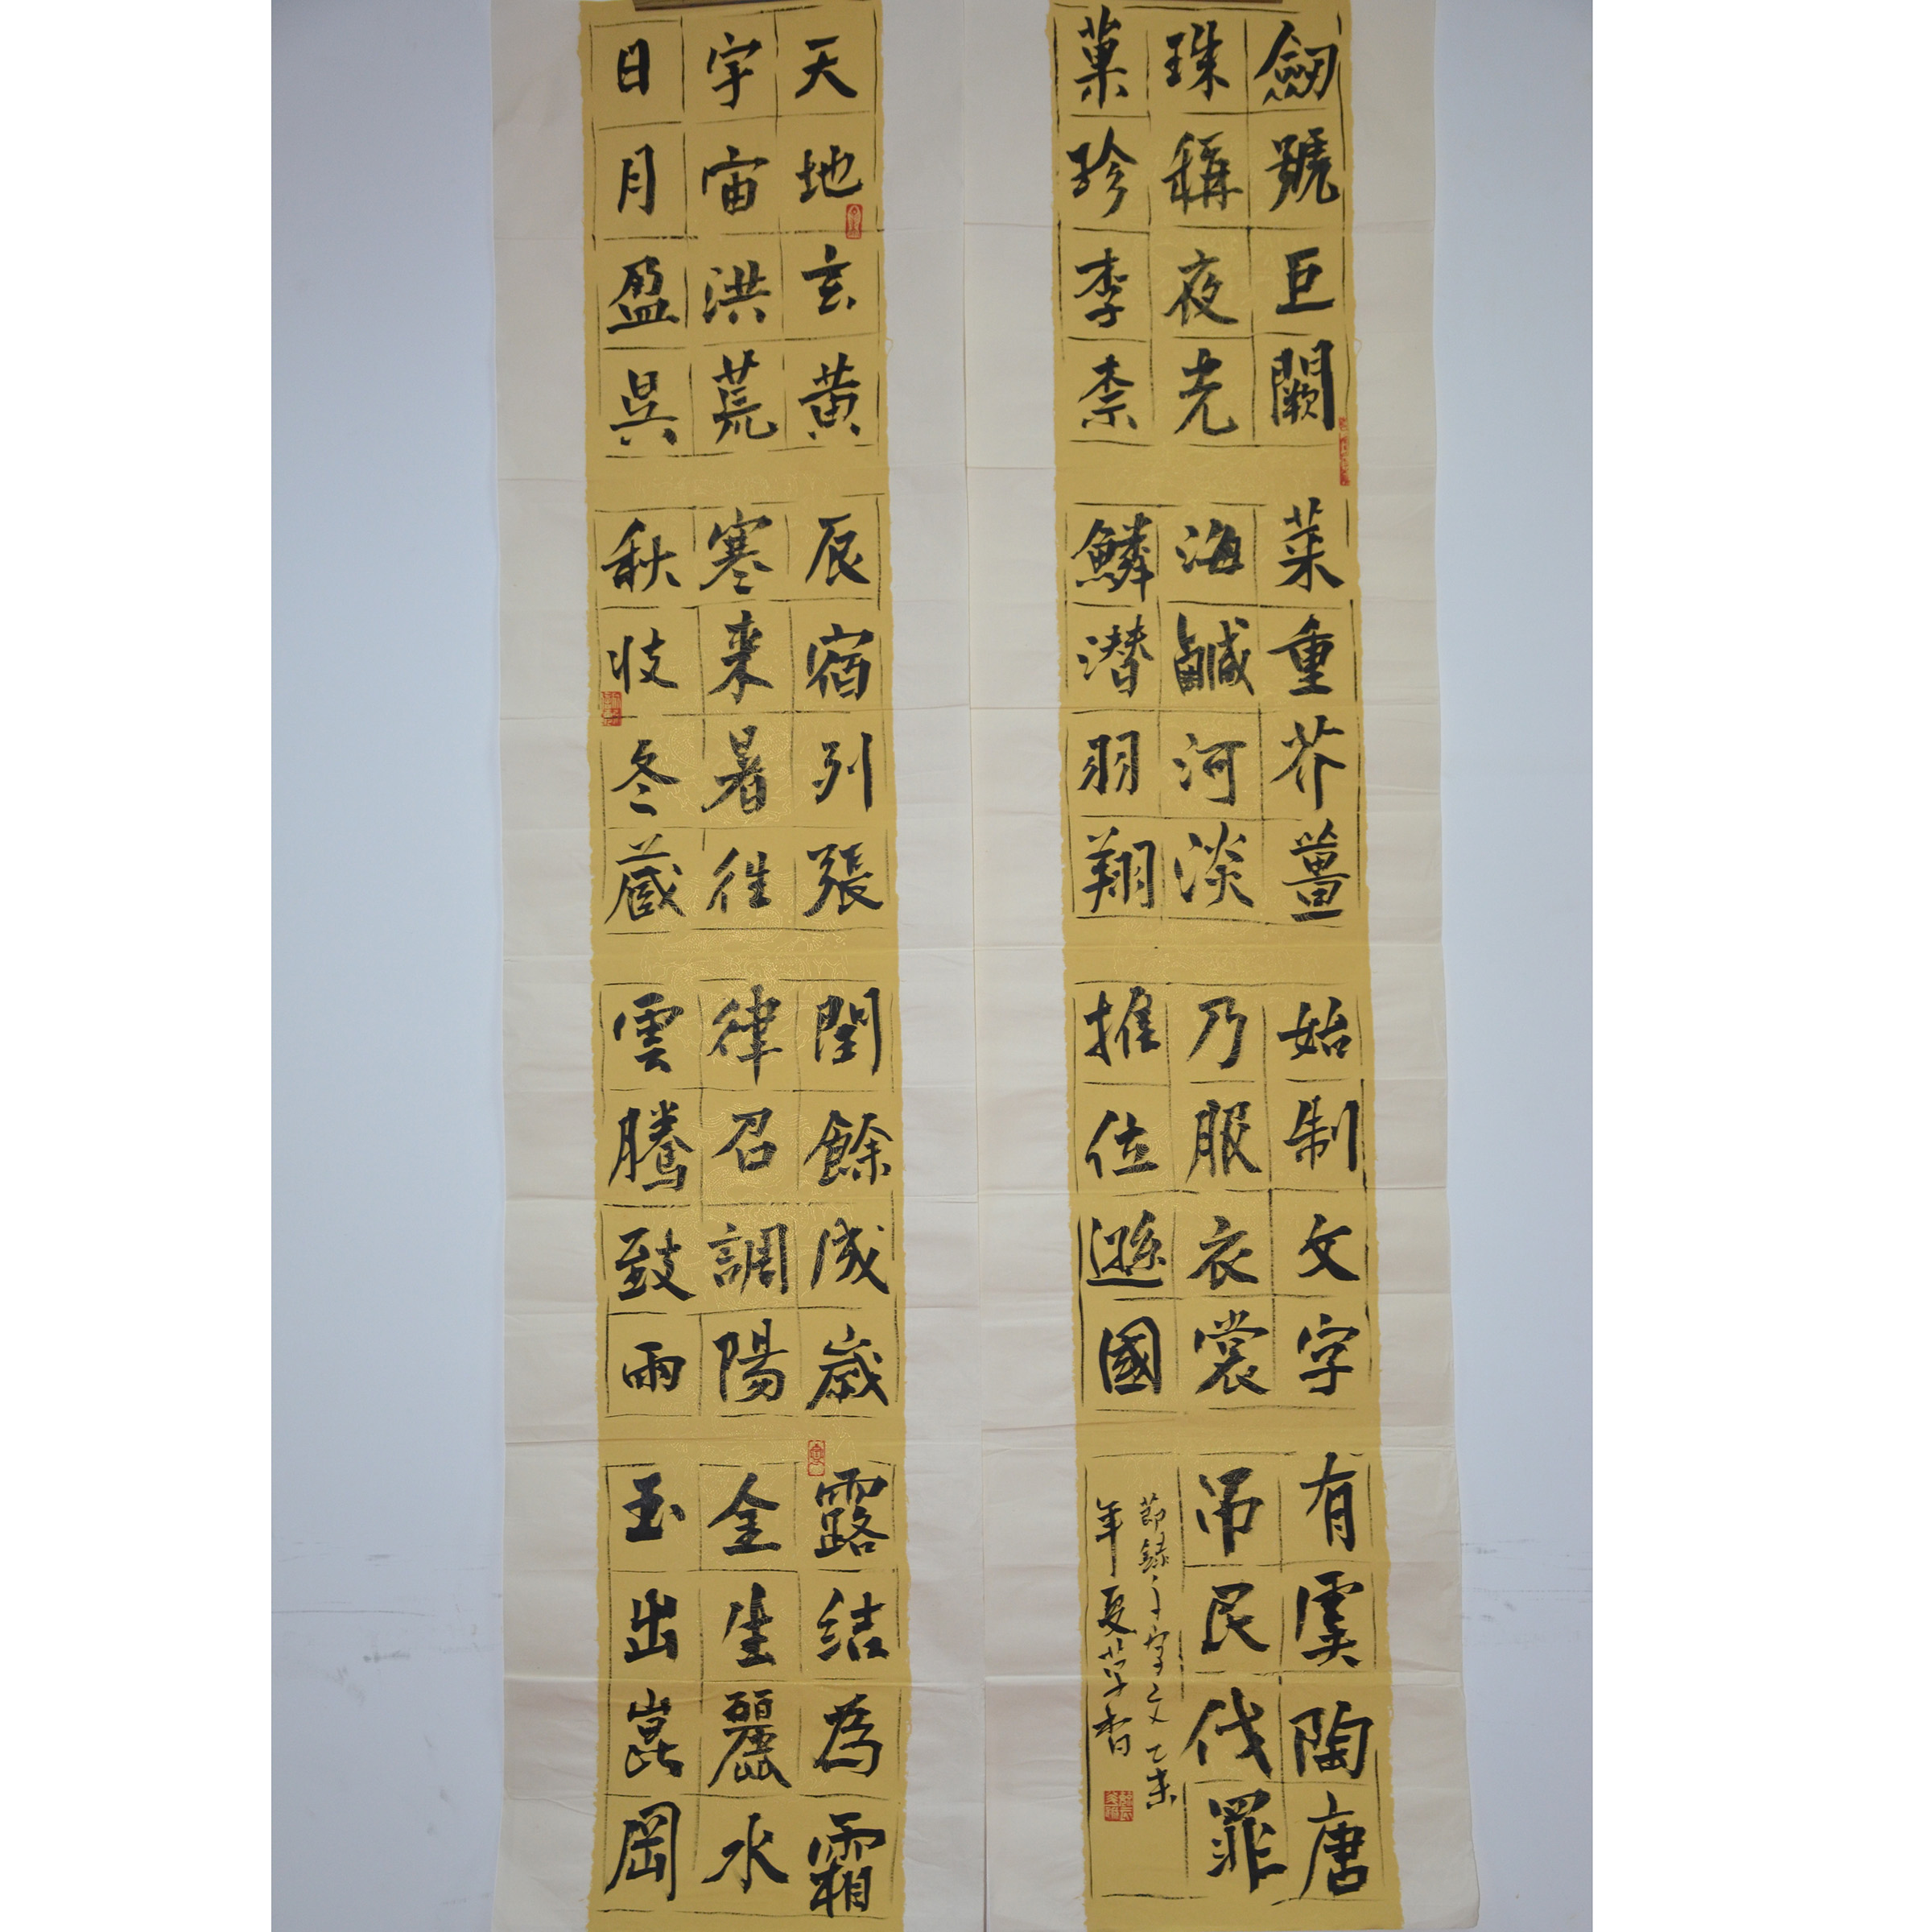 天地玄黄
宇宙洪荒
日月盈昃
辰宿列張
寒来暑徃
秋收冬藏
閏餘成歲
律召調陽
雲騰致雨
露結為霜
金生麗水
玉出崑岡
劒號巨闕
珠稱夜光
菓珍李柰
菜重芥薑
海鹹河淡
鱗潜羽翔
始制文字
乃服衣裳
推位遜國
有虞陶唐
吊民伐罪
節録千字文乙未
年夏